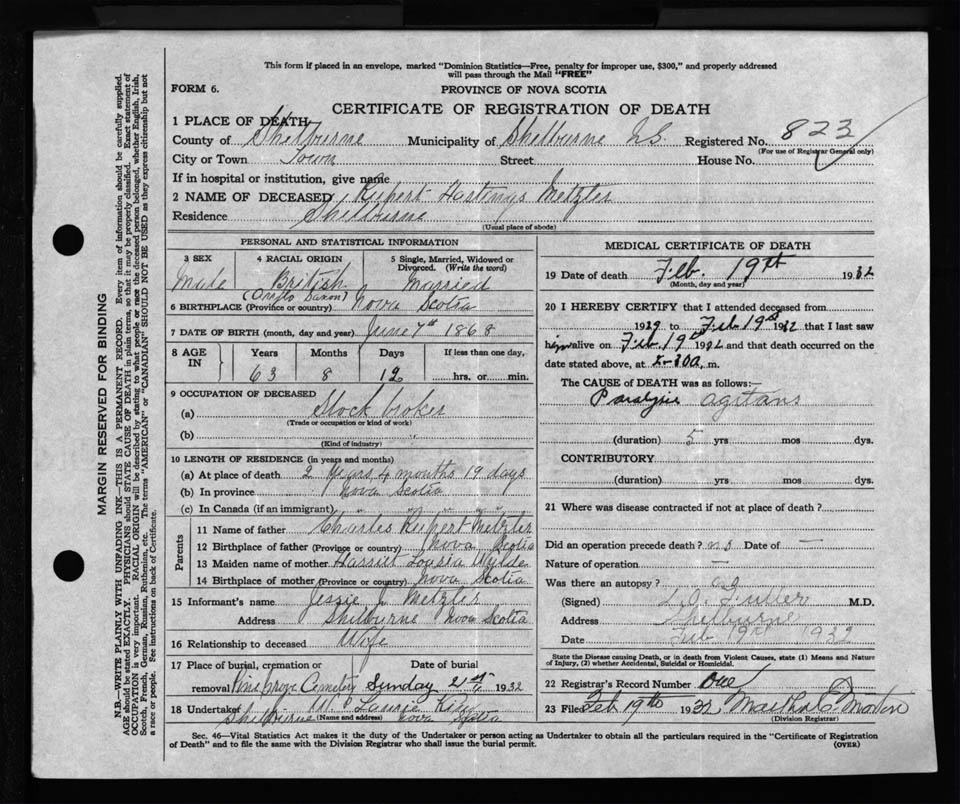 This form if placed in an envelope, marked "Dominion Statistics—Free, penalty for improper use, $300," and properly addressed
will pass through the Mail "FREE"
FORM 6.
PROVINCE OF NOVA SCOTIA
CERTIFICATE OF REGISTRATION OF DEATH
1 PLACE OF DEATH
County of Shelburne Municipality of Shelburne N.S. Registered No. 823
(For use of Registrar General only)
City or Town Town Street House No.
If in hospital or institution, give name
2 NAME OF DECEASED Rupert Hastings Metzler
Residence Shelburne
(Usual place of abode)
PERSONAL AND STATISTICAL INFORMATION
3 SEX 4 RACIAL ORIGIN 5 Single, Married, Widowed or
Divorced. (Write the word)
Male British Married
(Anglo Saxon)
6 BIRTHPLACE (Province or country) Nova Scotia
7 DATE OF BIRTH (month, day and year) June 7th 1868
8 AGE IN Years Months Days If less than one day,
63 8 12 hrs. or min.
9 OCCUPATION OF DECEASED
(a) Stock broker
(Trade or occupation or kind of work)
(b)
(Kind of industry)
10 LENGTH OF RESIDENCE (in years and months)
(a) At place of death 2 Years 4 months 19 days
(b) In province Nova Scotia
(c) In Canada (if an immigrant)
Parents
11 Name of father Charles Rupert Metzler
12 Birthplace of father (Province or country) Nova Scotia
13 Maiden name of mother Harriet Lousia Wylde
14 Birthplace of mother (Province or country) Nova Scotia
15 Informant's name Jessie J. Metzler
Address Shelburne Nova Scotia
16 Relationship to deceased Wife
17 Place of burial, cremation or Date of burial
removal Pine Grove Cemetery Sunday 21st 1932
18 Undertaker
Shelburne (Name and address) Nova Scotia
MEDICAL CERTIFICATE OF DEATH
19 Date of death Feb. 19th 1932
(Month, day and year)
20 I HEREBY CERTIFY that I attended deceased from
1929 to Feb 19th 1932 that I last saw
him alive on Feb. 19th 1932 and that death occurred on the
date stated above, at 30 a, m.
The CAUSE OF DEATH was as follows:—
Paralysis agitans
(duration) 5 yrs mos dys.
CONTRIBUTORY
(duration) yrs mos dys.
21 Where was disease contracted if not at place of death?
Did an operation precede death? no Date of —
Nature of operation —
Was there an autopsy?
(Signed) Fuller M.D.
Address Shelburne
Date Feb 19th 1932
State the Disease causing Death, or in death from Violent Causes, state (1) Means and Nature
of Injury, (2) whether Accidental, Suicidal or Homicidal.
22 Registrar's Record Number One
23 Filed Feb 19th 1932 Martha
(Division Registrar)
Sec. 46—Vital Statistics Act makes it the duty of the Undertaker or person acting as Undertaker to obtain all the particulars required in the "Certificate of Registration
of Death" and to file the same with the Division Registrar who shall issue the burial permit. (OVER)
MARGIN RESERVED FOR BINDING
N.B.—WRITE PLAINLY WITH UNFADING INK—THIS IS A PERMANENT RECORD. Every item of information should be carefully supplied.
AGE should be stated EXACTLY. PHYSICIANS should STATE CAUSE OF DEATH in plain terms, so that it may be properly classified. Exact statement of
OCCUPATION is very important. RACIAL ORIGIN will be described by stating to what people or race the deceased person belonged, whether English, Irish,
Scotch, French, German, Russian, Ruthenian, etc. The terms "AMERICAN" or "CANADIAN" SHOULD NOT BE USED as they express citizenship but not
a race or people. See instructions on back of Certificate.